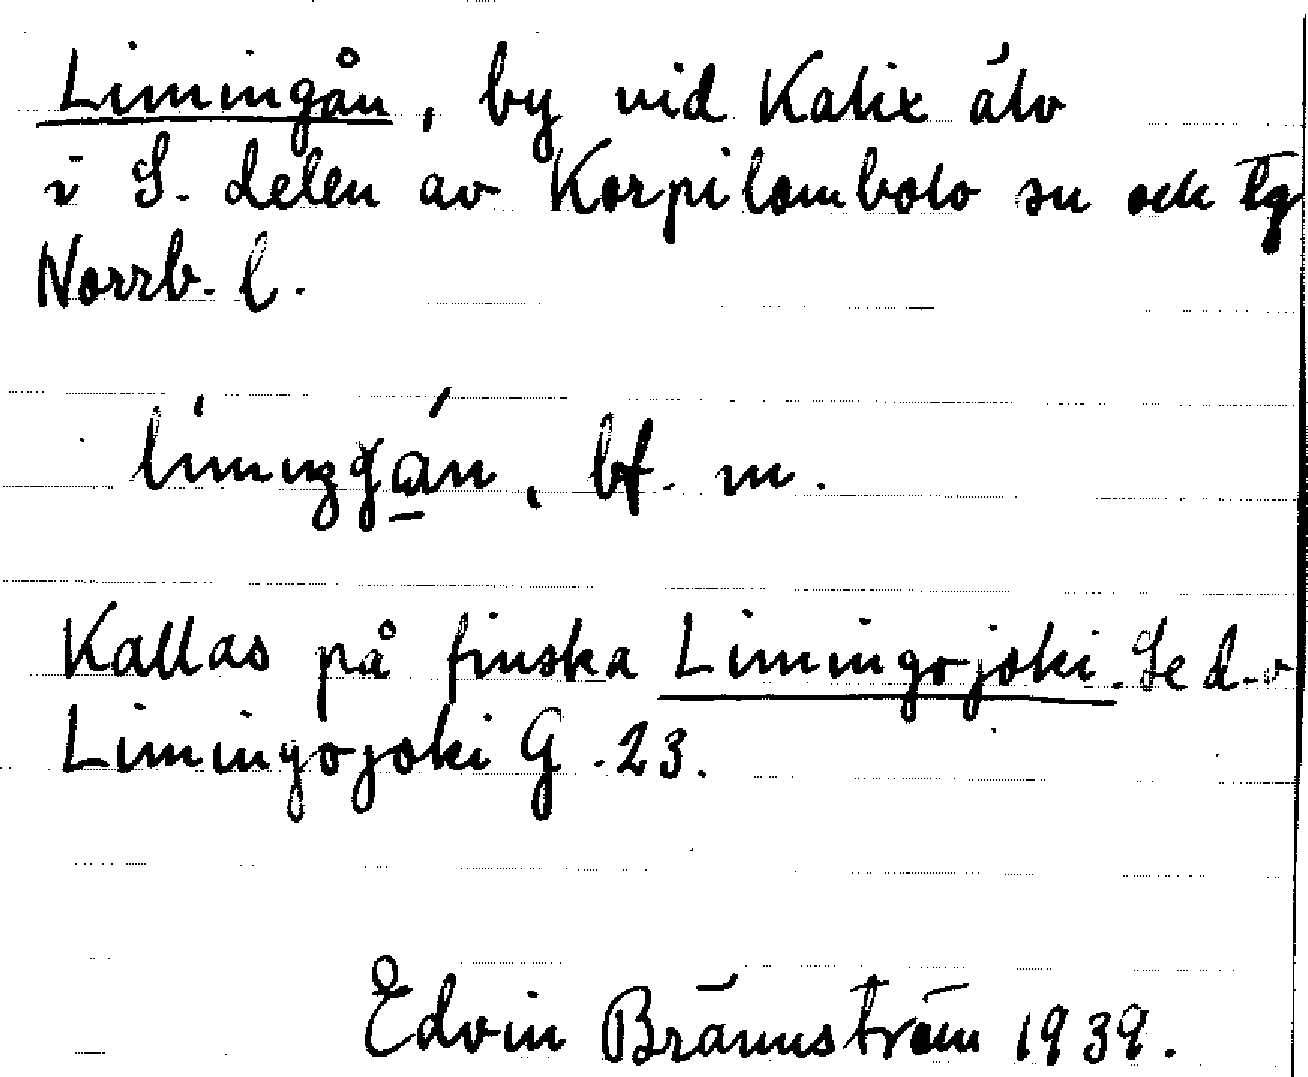 Limingån, by vid Kalix älv
i S. delen av Korpilombolo sn och tg
Norrb. l.
bf. m.
Kallas på finska Limingojoki. Se d.o
Limingojoki G. 23.
Edvin Brännström 1939.